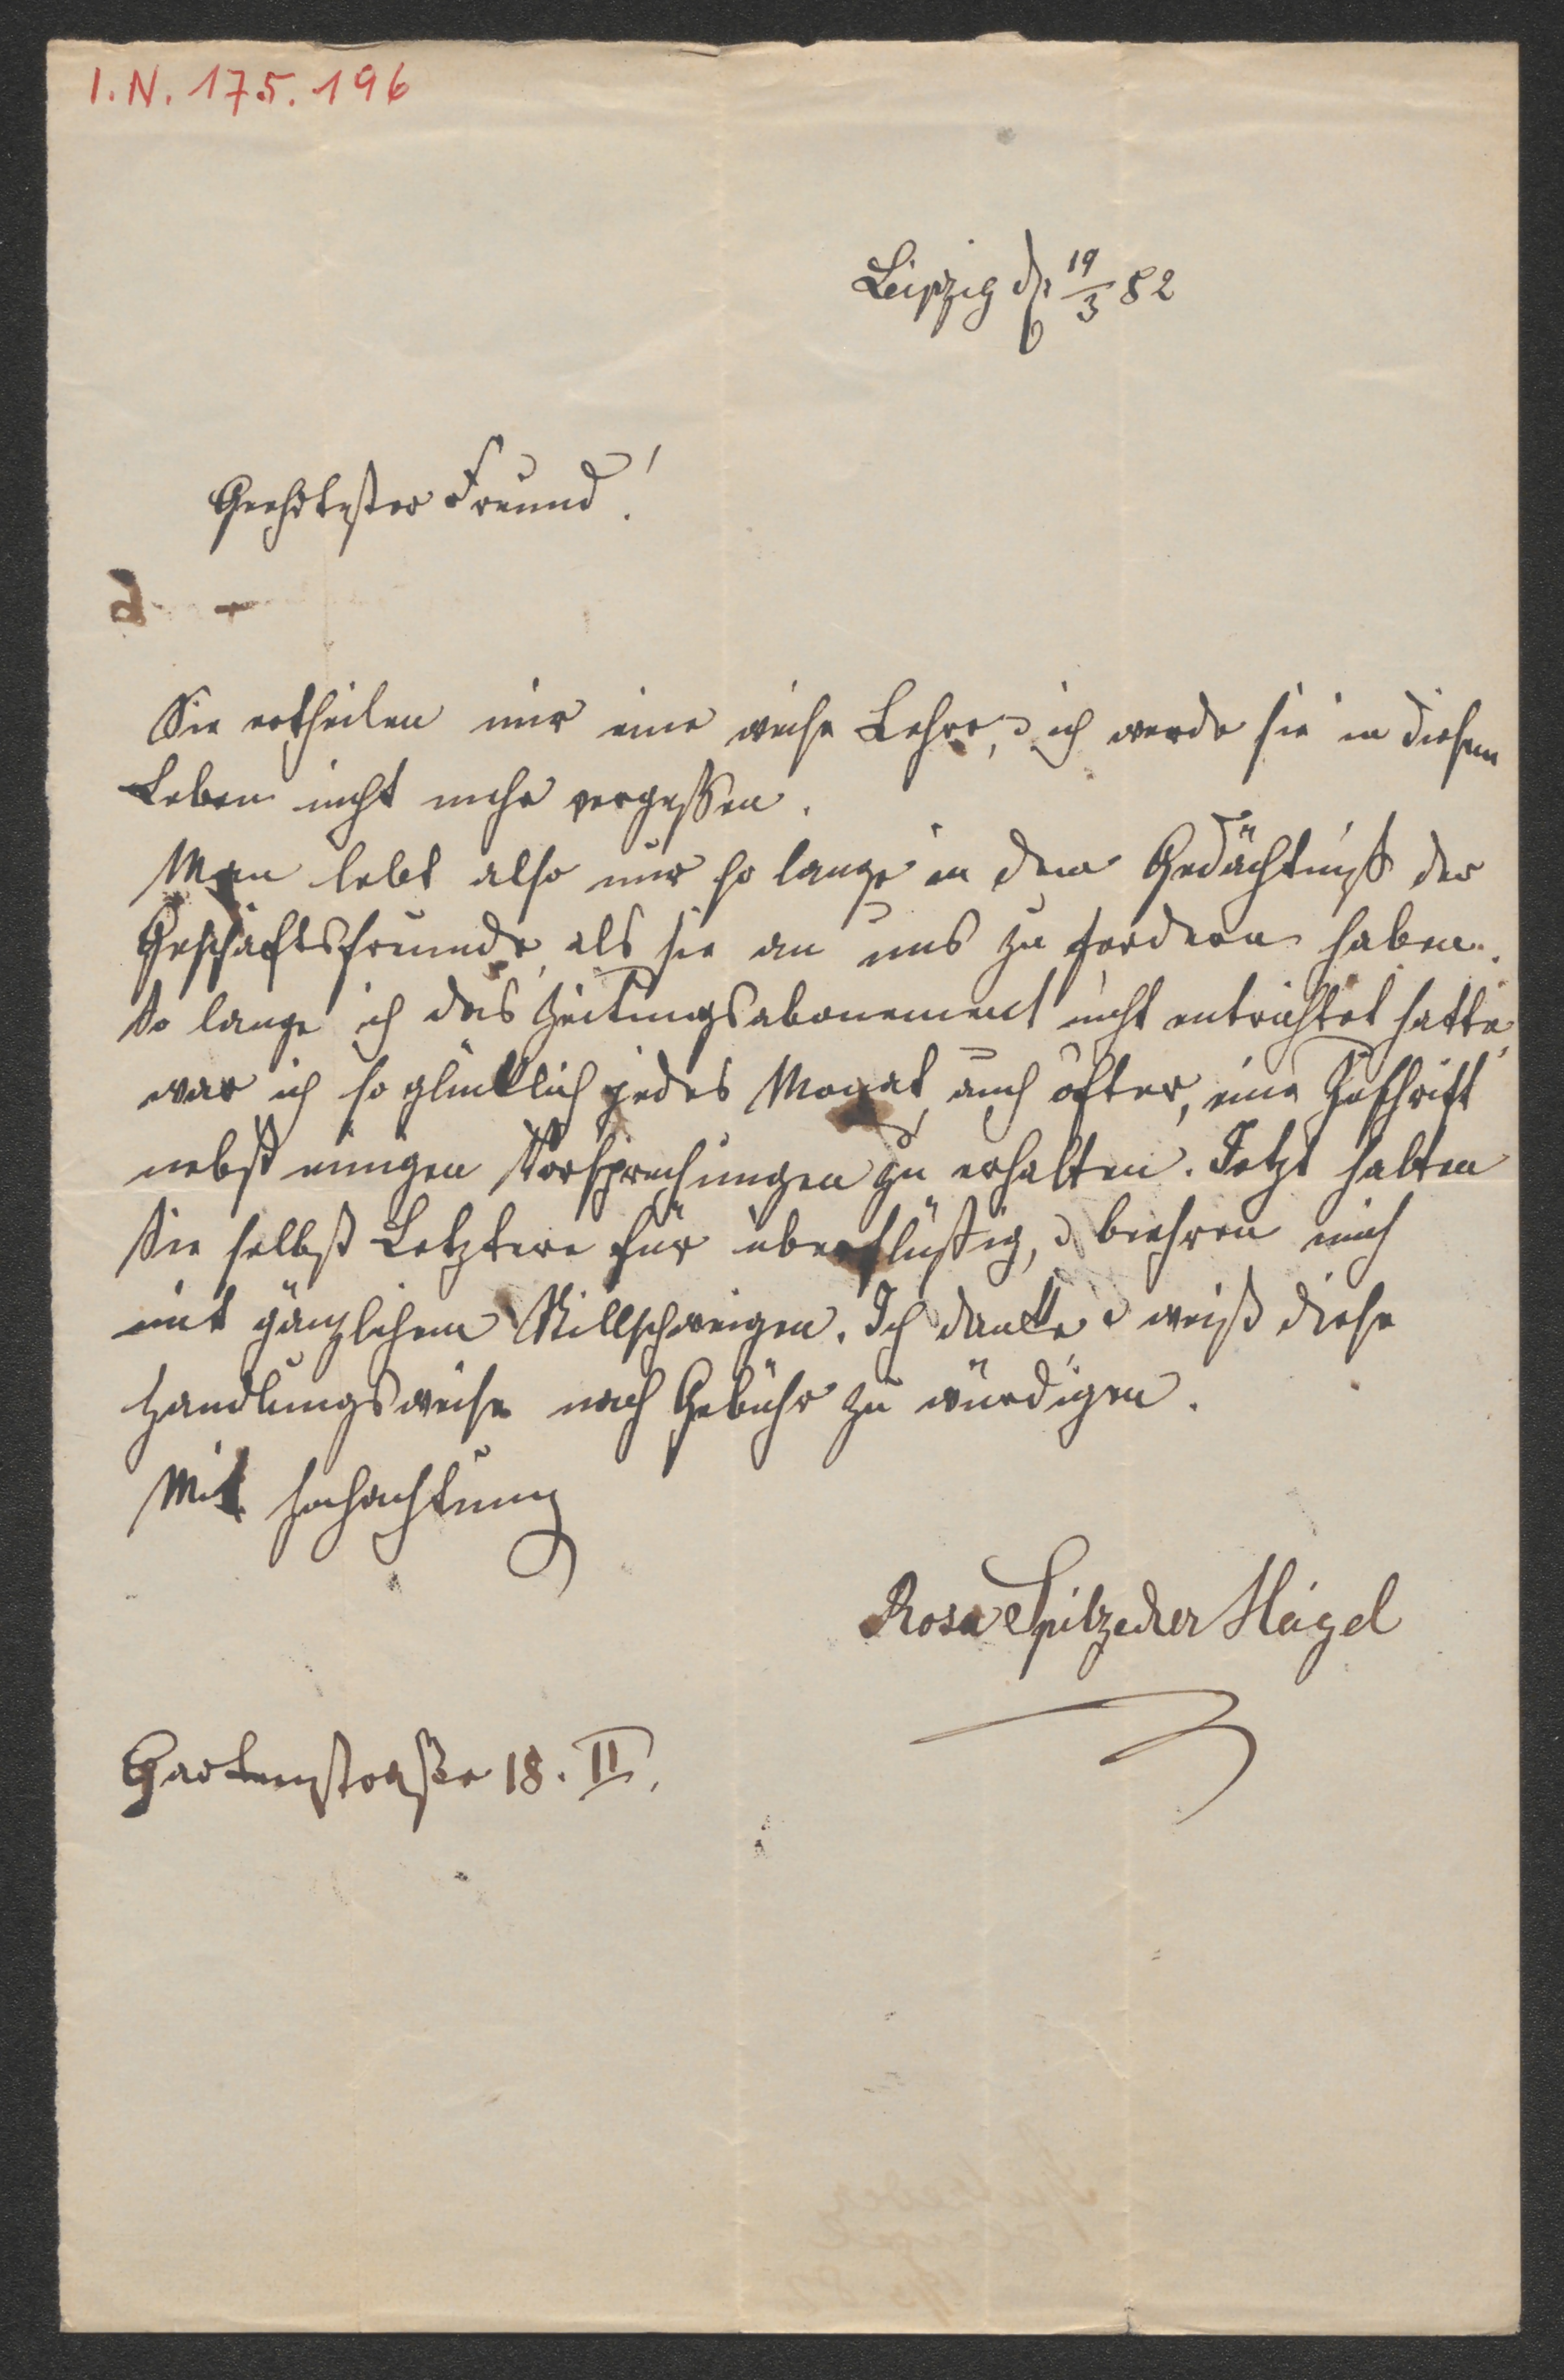 I.N. 175.196
Leipzig d. 19/3 82
Geehrtester Freund!
Sie ertheilen mir eine weise Lehre, & ich werde sie in diesem
Leben nicht mehr vergessen.
Man lebt also nur so lange in dem Gedächtniß der
Geschäftsfreunde, als sie an uns zu fordern haben.
So lange ich das Zeitungsabonement nicht entrichtet hatte,
war ich so glücklich jedes Monat, auch öfter, eine Zuschrift
nebst einigen Versprechungen zu erhalten. Jetzt halten
Sie selbst Letztere für überflüßig, & beehren mich
mit gänzlichem Stillschweigen. Ich danke & weiß diese
Handlungsweise nach Gebühr zu würdigen.
Mit Hochachtung
Rosa Spitzeder Hágel
Gartenstraße 18. II.